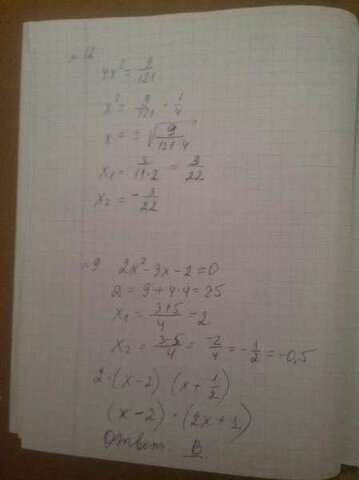 4x² = 9/121
x² = 9/121 · 1/4
x = ± √(9/(121·4))
x₁ = 3/(11·2) = 3/22
x₂ = - 3/22
2x² - 3x - 2 = 0
D = 9 + 4·4 = 25
x₁ = (3+5)/4 = 2
x₂ = (3-5)/4 = -2/4 = -1/2 = -0,5
2·(x-2) (x + 1/2)
(x-2)·(2x+1)
Ответ В